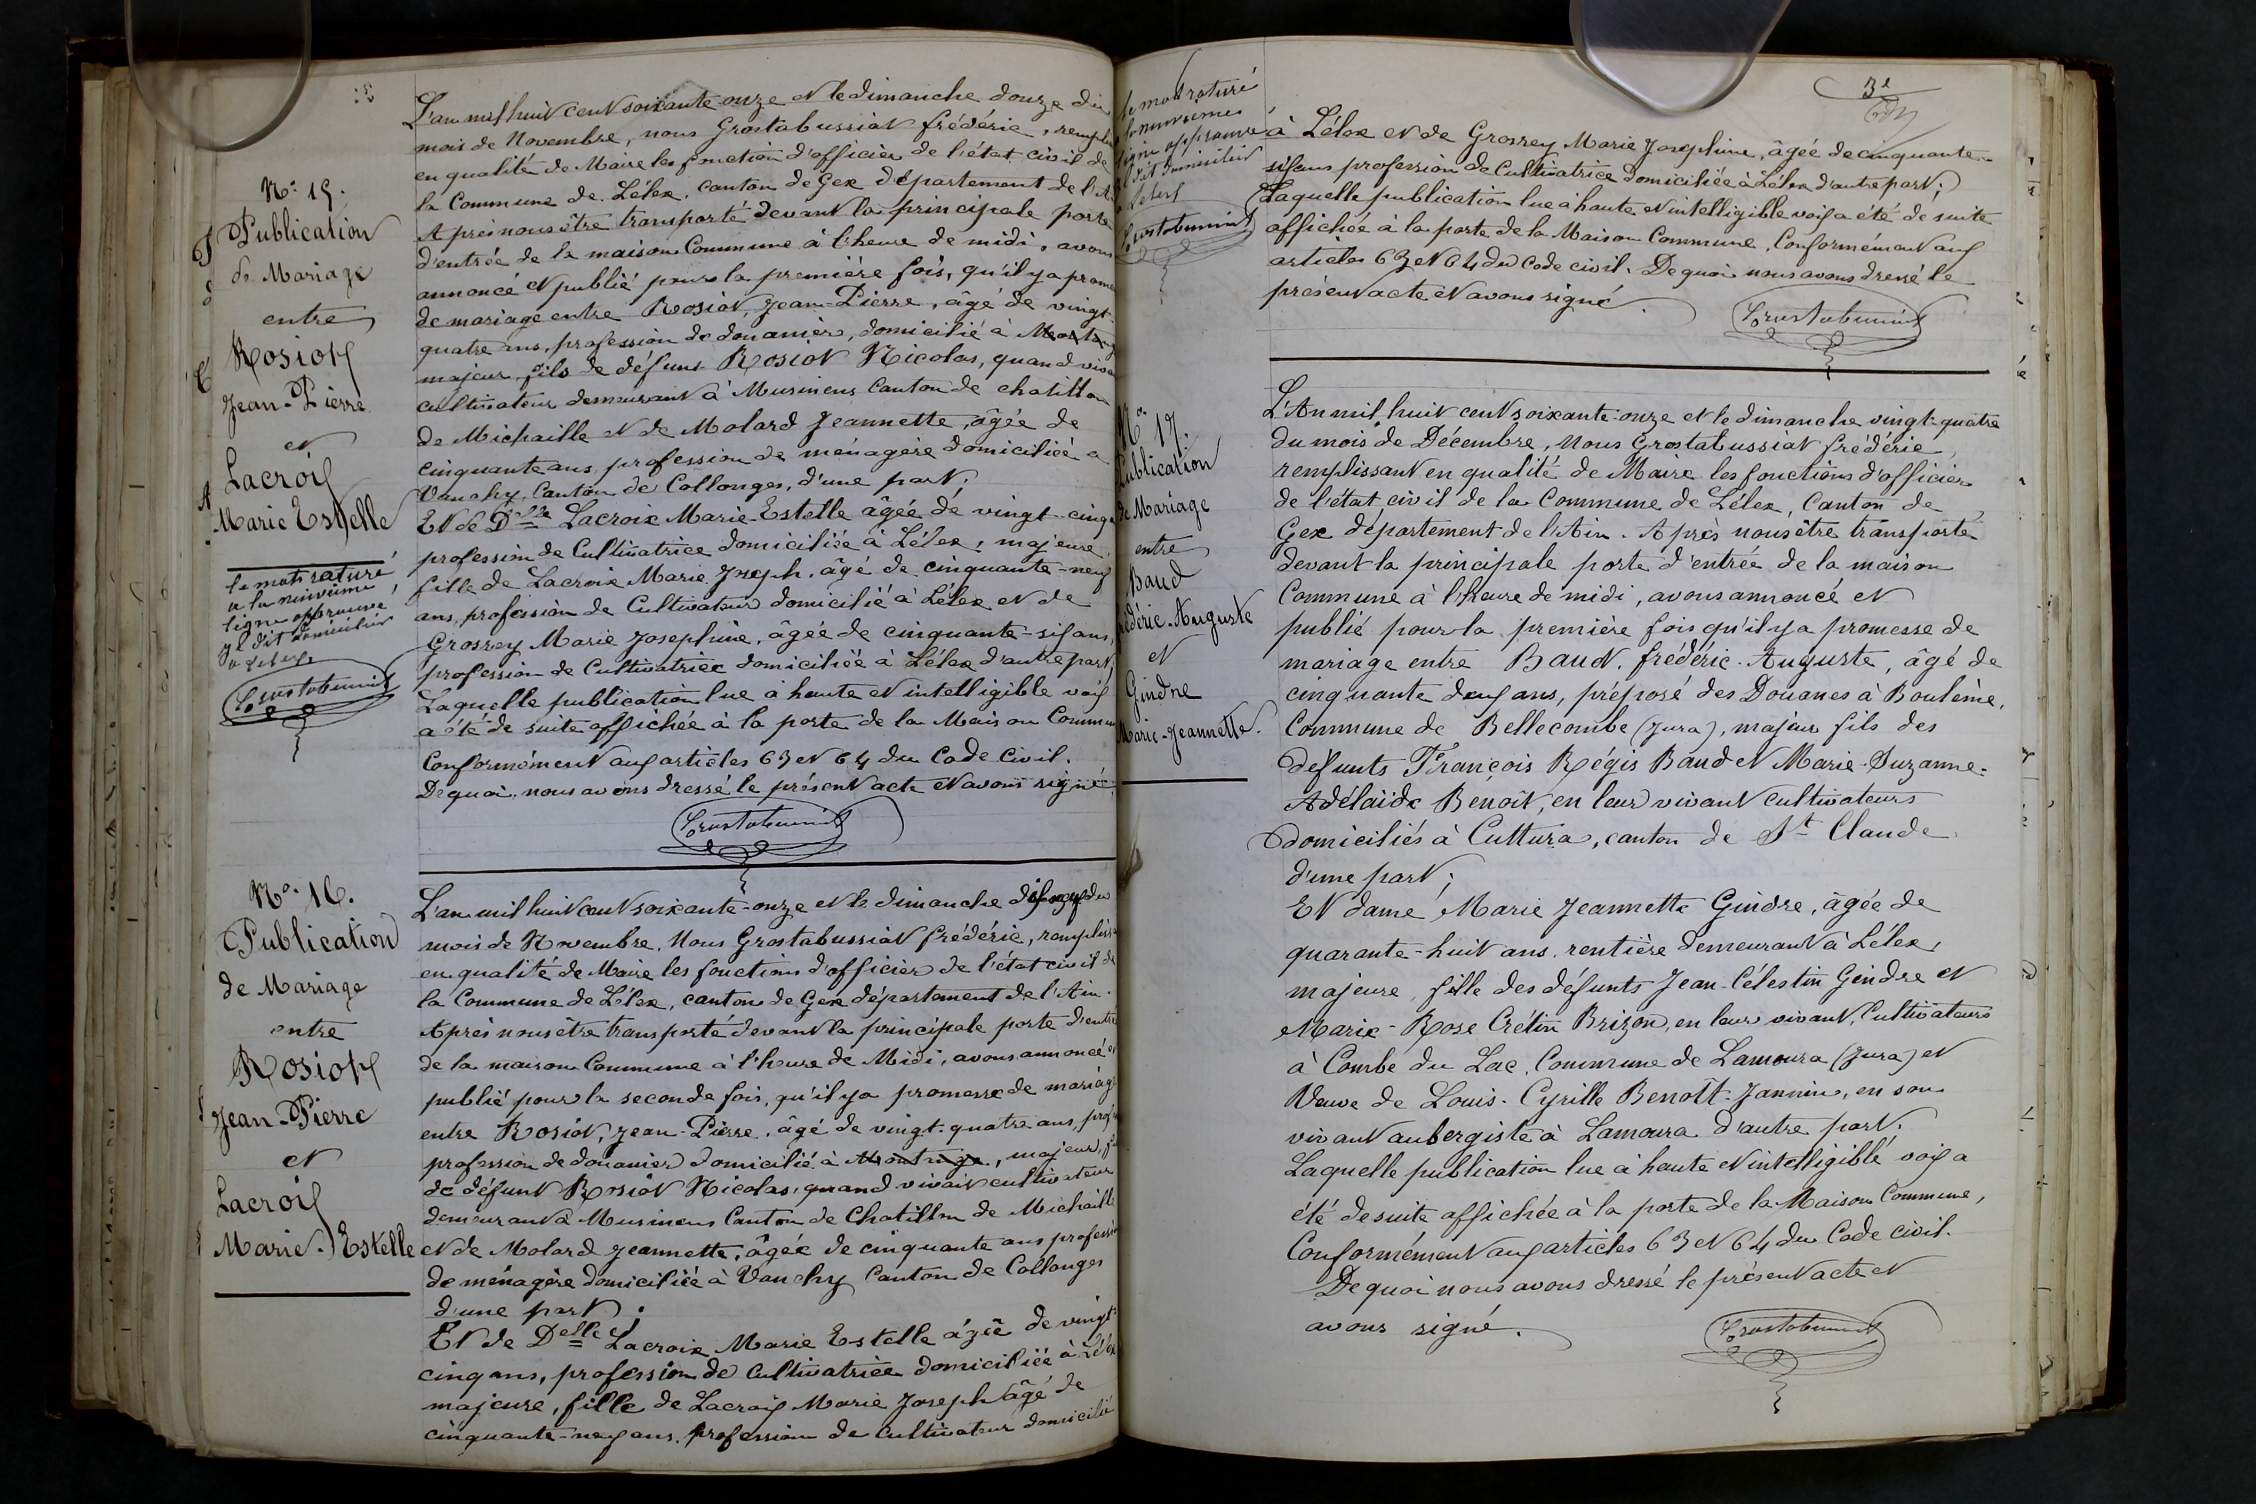 N.° 15.
Publication
de Mariage
entre
Rosiot
Jean-Pierre
et
Lacroix
Marie Estelle
le mot raturé
a la neuvième
ligne approuvé
et dit domicilié
à Lélex
Grostabussiat
L'an mil huit cent soixante-onze et le dimanche douze du
mois de Novembre, nous Grostabussiat frédéric,
en qualité de Maire les fonction d'officier de l'état civil de
la Commune de Lélex, canton de Gex département de
Après nous être transporté devant la principale porte
d'entrée de la maison Commune à l'heure de midi, avons
annoncé et publié pour la première fois, qu'il y a
de mariage entre Rosiot, Jean-Pierre, âgé de vingt-
quatre ans, profession de douanier, domicilié à
majeur, fils de défunt Rosiot Nicolas, quand
cultivateur demeurant à Musinens Canton de Chatillon
de Michaille et de Molard Jeannette, âgée de
cinquante ans, profession de ménagère domiciliée à
Vanchy, Canton de Collonges, d'une part;
Et de Delle Lacroix Marie-Estelle âgée de vingt-cinq
profession de Cultivatrice domiciliée à Lélex, majeure,
fille de Lacroix Marie Joseph, âgé de cinquante-neuf
ans, profession de Cultivateur domicilié à Lélex et de
Grosrey Marie Josephine, âgée de cinquante-six ans,
profession de Cultivatrice domiciliée à Lélex d'autre part;
Laquelle publication lue à haute et intelligible voix
a été de suite affichée à la porte de la Maison Commune
Conformément aux articles 63 et 64 du Code Civil.
De quoi, nous avons dressé le présent acte et avons signé,
Grostabussiat
N.° 16.
Publication
de Mariage
entre
Rosiot
Jean-Pierre
et
Lacroix
Marie-Estelle
L'an mil huit cent soixante-onze et le dimanche dix neuf du
mois de Novembre, Nous Grostabussiat frédéric,
en qualité de Maire les fonctions d'officier de l'état civil de
la Commune de Lélex, canton de Gex département de l'Ain.
Après nous être transporté devant la principale porte d'entrée
de la maison Commune à l'heure de Midi, avons annoncé et
publié pour la seconde fois, qu'il y a promesse de mariage
entre Rosiot, Jean-Pierre, âgé de vingt-quatre ans,
profession de douanier domicilié à, majeur,
de défunt Rosiot Nicolas, quand vivait cultivateur
demeurant à Musinens Canton de Chatillon de Michaille
et de Molard Jeannette, âgée de cinquante ans profession
de ménagère domiciliée à Vanchy Canton de Collonges
d'une part;
Et de Delle Lacroix Marie Estelle âgée de vingt-
cinq ans, profession de Cultivatrice domiciliée à Lélex
majeure, fille de Lacroix Marie Joseph âgé de
cinquante-neuf ans, profession de Cultivateur domicilié
3e
le mot raturé
ligne approuvé
et dit domicilié
à Lélex
Grostabussiat
à Lélex et de Grosrey Marie Josephine, âgée de cinquante-
six ans profession de Cultivatrice domiciliée à Lélex d'autre part;
Laquelle publication lue à haute et intelligible voix a été de suite
affichée à la porte de la Maison Commune, Conformément aux
articles 63 et 64 du Code civil. De quoi nous avons dressé le
présent acte et avons signé.
Grostabussiat
N.° 17.
Publication
de Mariage
entre
Baud
frédéric-Auguste
et
Gindre
Marie-Jeannette.
L'An mil huit cent soixante-onze et le dimanche vingt-quatre
du mois de Décembre, Nous Grostabussiat frédéric,
remplissant en qualité de Maire les fonctions d'officier
de l'état civil de la Commune de Lélex, Canton de
Gex département de l'Ain. Après nous être transporté
devant la principale porte d'entrée de la maison
Commune à l'heure de midi, avons annoncé et
publié pour la première fois qu'il y a promesse de
mariage entre Baud, frédéric-Auguste, âgé de
cinquante deux ans, préposé des Douanes à Boulème,
Commune de Bellecombe (Jura), majeur fils des
défunts François Régis Baud et Marie-Suzanne-
Adélaïde Benoît, en leur vivant cultivateurs
domiciliés à Cuttura, canton de St Claude
d'une part;
Et dame Marie Jeannette Gindre, âgée de
quarante-huit ans, rentière demeurant à Lélex,
majeure, fille des défunts Jean-Célestin Gindre et
Marie-Rose Crétin Brizon, en leur vivant, Cultivateurs
à Combe du Lac, Commune de Lamoura (Jura) et
Veuve de Louis-Cyrille Benoît-Jannin, en son
vivant aubergiste à Lamoura d'autre part.
Laquelle publication lue à haute et intelligible voix a
été de suite affichée à la porte de la Maison Commune,
Conformément aux articles 63 et 64 du Code civil.
De quoi nous avons dressé le présent acte et
avons signé.
Grostabussiat